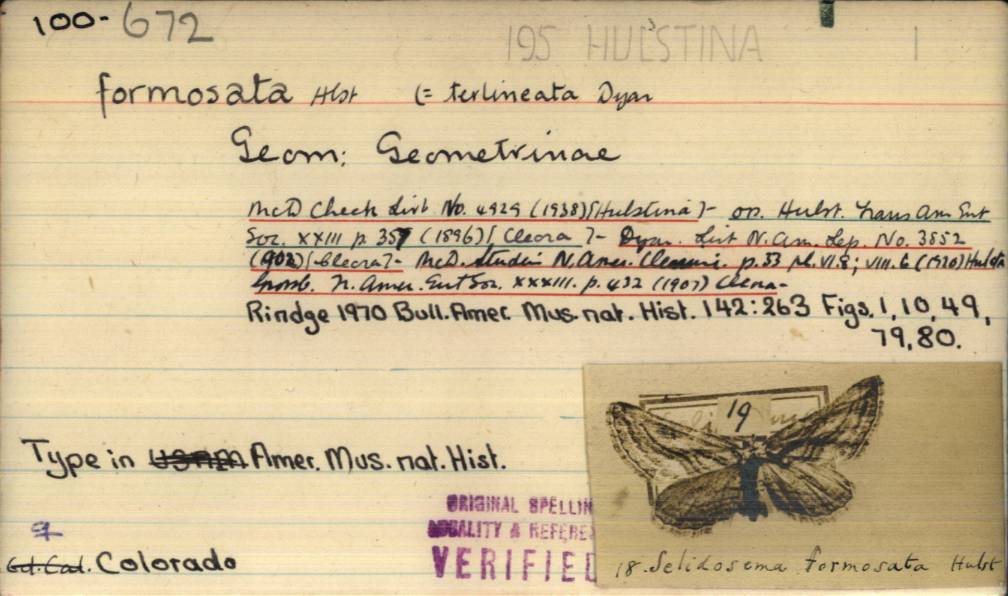 100-672
195 HULSTINA 1
formosata Hlst (= terlineata Dyar
Geom: Geometrinae
McD Check List No. 4929 (1938)[Hulstina]- op. Hulst. Trans Am Ent
Soc. XXIII p 357 (1896)[Cleora]- Dyar. List N. Am. Lep. No. 3852
(1902)[Cleora]- McD. Studies N. Amer. Cleorini. p. 33 pl. VI. 8; VIII. 6 (1920) Hulsta
Grossb. Tr. Amer. Ent Soc. XXXIII. p. 432 (1907) Cleora-
Rindge 1970 Bull. Amer. Mus. nat. Hist. 142:263 Figs. 1, 10, 49,
79, 80.
19
Type in USNM Amer. Mus. nat. Hist.
♀
Col. Cal. Colorado
ORIGINAL SPELLIN
LOCALITY & REFERE
VERIFIED
18. Selidosema formosata Hulst